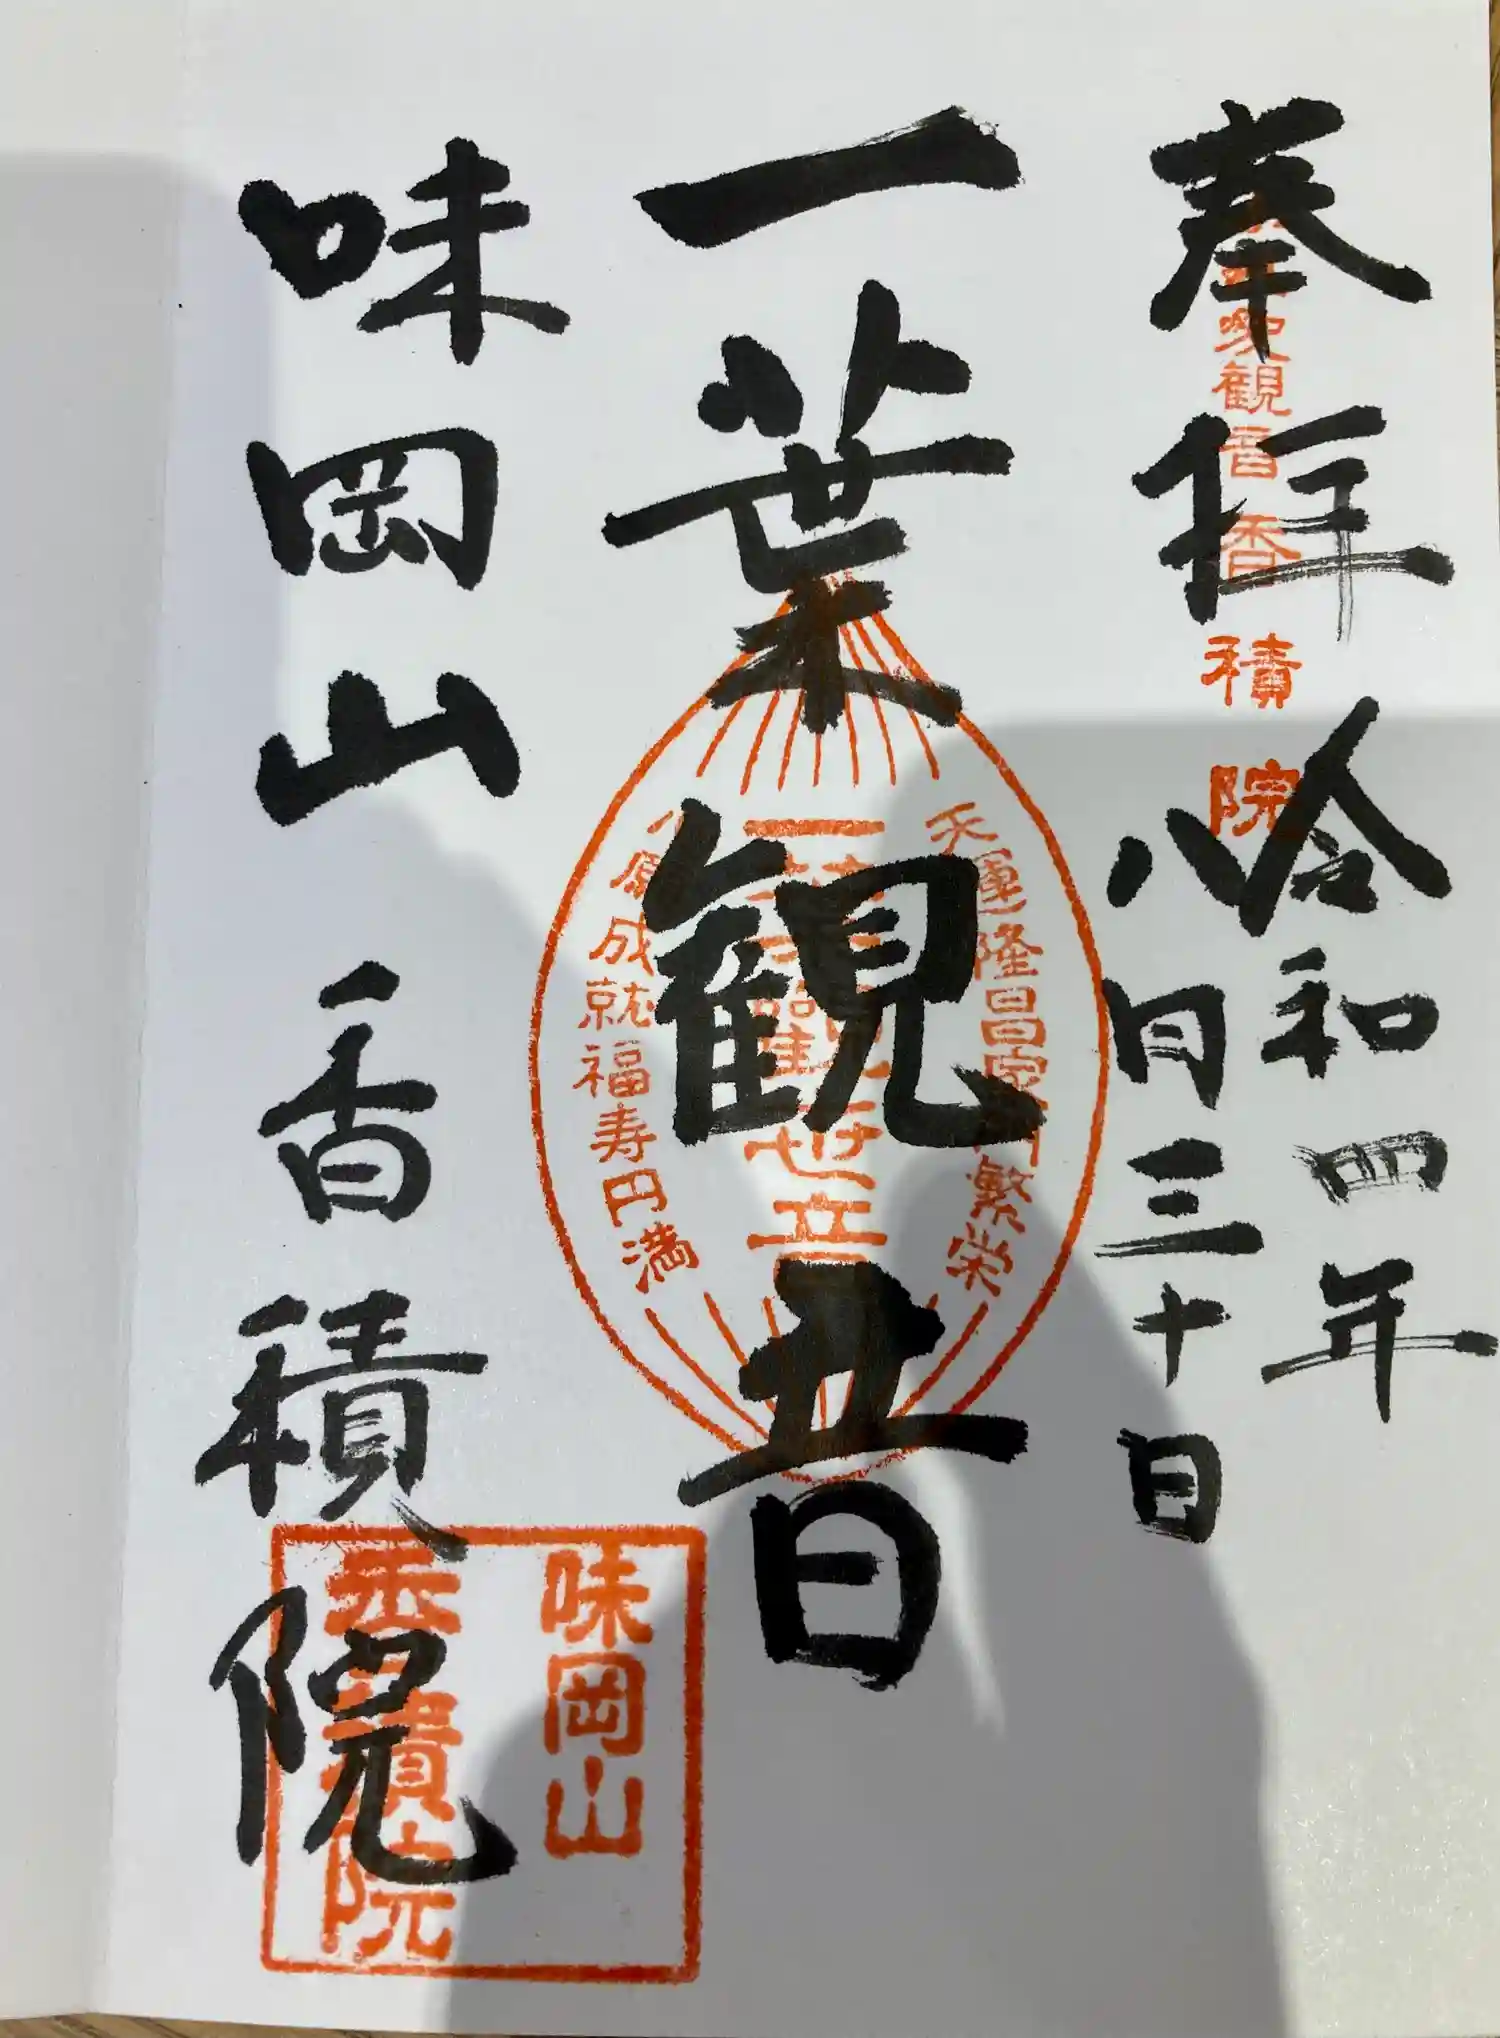 奉拝
令和四年
八月三十日
観音 香積院
一葉観音
天運隆昌家門繁栄
願成就福寿円満
味岡山香積院
味岡山
香積院